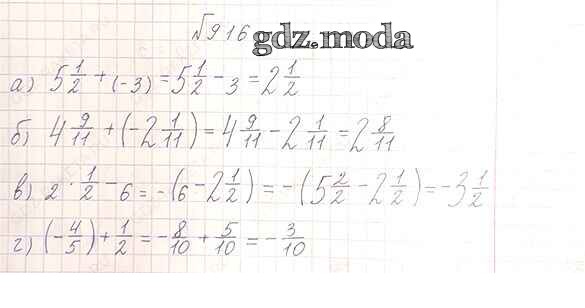 №916 gdz.moda
а) 5 1/2 + (-3) = 5 1/2 - 3 = 2 1/2
б) 4 9/11 + (-2 1/11) = 4 9/11 - 2 1/11 = 2 8/11
в) 2 · 1/2 - 6 = -(6 - 2 1/2) = -(5 2/2 - 2 1/2) = -3 1/2
г) (-4/5) + 1/2 = -8/10 + 5/10 = -3/10